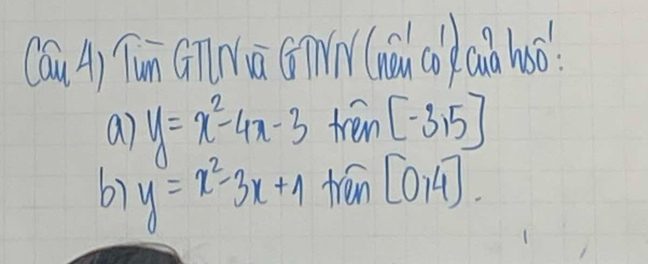 Câu 4) Tìm GTLN và GTNN (nếu có) của hsố:
a) y = x² - 4x - 3 trên [-3;5]
b) y = x² - 3x + 1 trên [0;4].